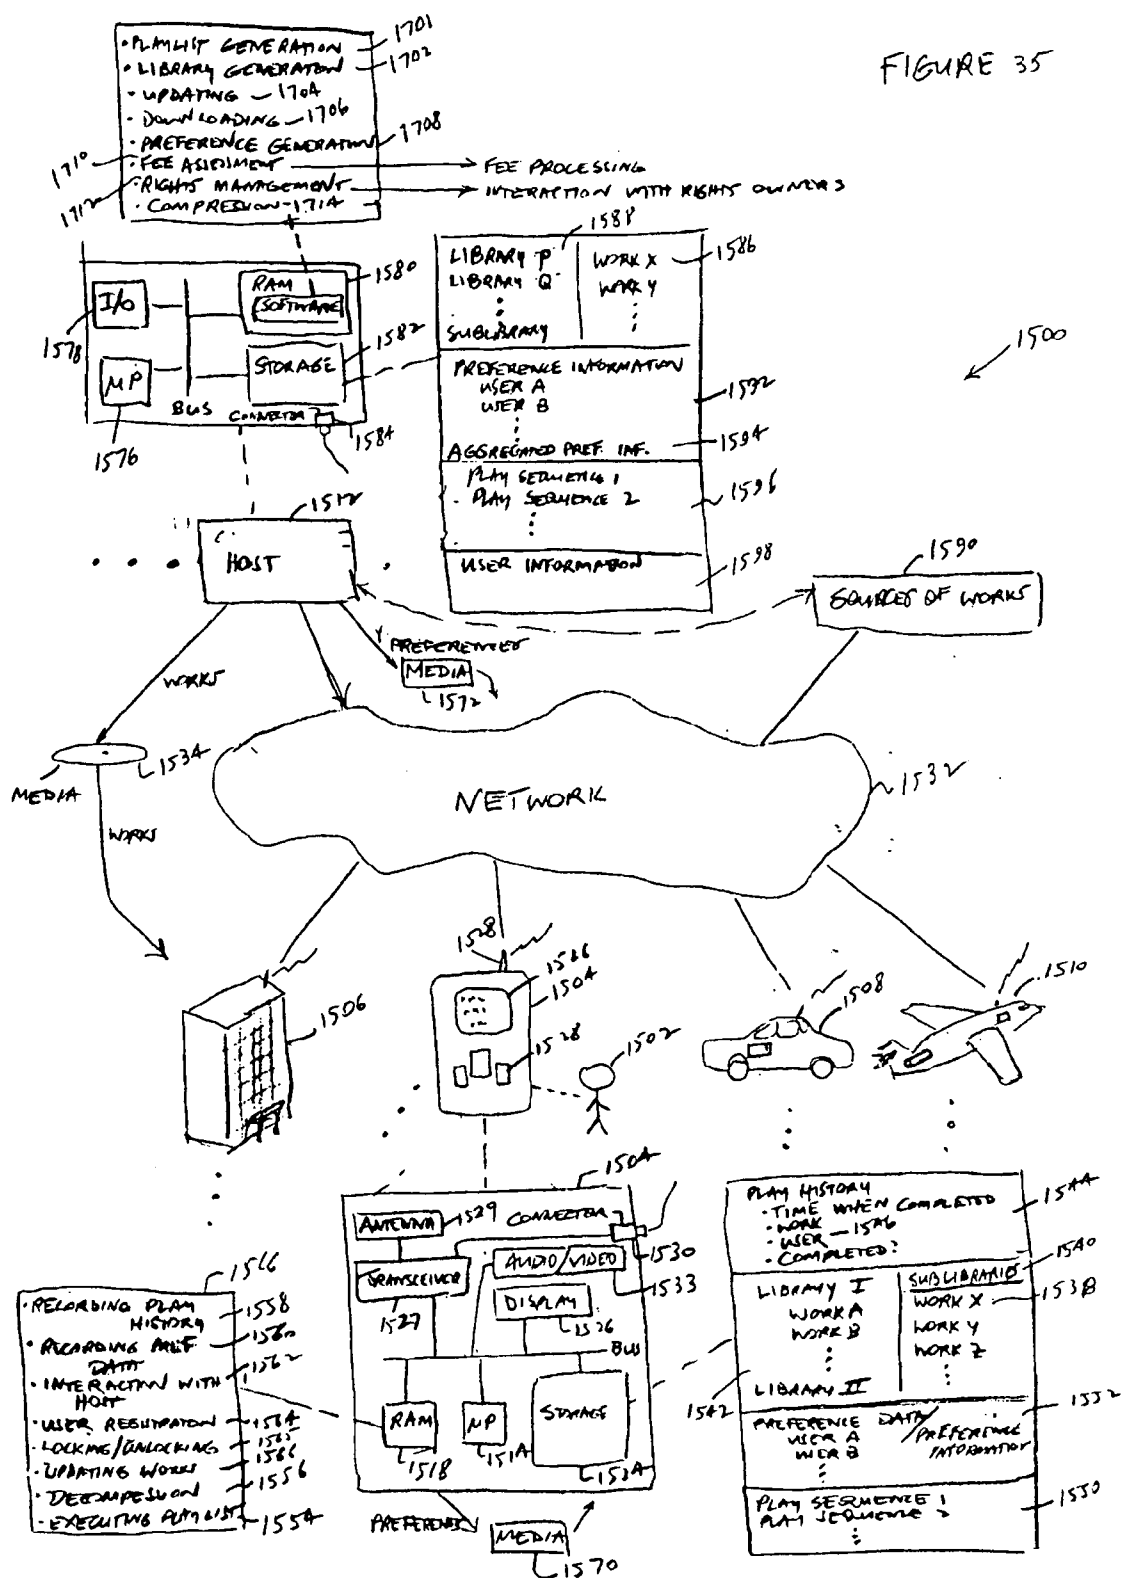 FIGURE 35
• PLAYLIST GENERATION 1701
• LIBRARY GENERATION 1702
• UPDATING 1704
• DOWNLOADING 1706
• PREFERENCE GENERATION 1708
1710 • FEE ASSESSMENT → FEE PROCESSING
1712 • RIGHTS MANAGEMENT → INTERACTION WITH RIGHTS OWNERS
• COMPRESSION 1714
I/O
1578
RAM
SOFTWARE
1580
STORAGE
1582
MP
1576
BUS
CONNECTOR
1584
LIBRARY P
LIBRARY Q
SUBLIBRARY
1588
WORK X
WORK Y
1586
PREFERENCE INFORMATION
USER A
USER B
1592
AGGREGATED PREF. INF.
1594
PLAY SEQUENCE 1
PLAY SEQUENCE 2
1596
USER INFORMATION
1598
1500
1512
HOST
1590
SOURCES OF WORKS
PREFERENCES
MEDIA
1572
WORKS
MEDIA
1534
WORKS
NETWORK
1532
1506
1528
1526
1504
1528
1502
1508
1510
1504
ANTENNA
1529
CONNECTOR
1530
TRANSCEIVER
1527
AUDIO/VIDEO
1533
DISPLAY
1526
BUS
RAM
1518
MP
1514
STORAGE
1524
PREFERENCES
MEDIA
1570
1516
• RECORDING PLAY HISTORY 1558
• RECORDING PREF. DATA 1560
• INTERACTION WITH HOST 1562
• USER REGISTRATION 1564
• LOCKING/UNLOCKING 1565
• UPDATING WORKS 1566
• DECOMPRESSION 1556
• EXECUTING PLAYLIST 1554
PLAY HISTORY
• TIME WHEN COMPLETED
• WORK
• USER 1546
• COMPLETED?
1544
LIBRARY I
WORK A
WORK B
LIBRARY II
1542
SUBLIBRARIES
1540
WORK X
1538
WORK Y
WORK Z
PREFERENCE DATA/PREFERENCE INFORMATION
USER A
USER B
1552
PLAY SEQUENCE 1
PLAY SEQUENCE 2
1550